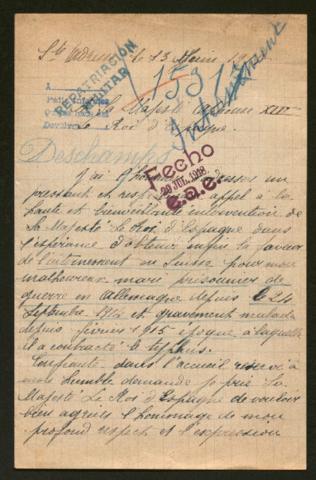 le 13 Mars
REPATRIACIÓN
MILITAR
1531
Internement
A Sa Majesté Alphonse XIII
Le Roi d'Espagne.
Deschamps
Fecho
20 JUL. 1918
J'ai l'honneur un
pressant et appel à la
haute et bienveillante intervention de
Sa Majesté Le Roi d'Espagne dans
l'espérance d'obtenir la faveur
de l'internement en Suisse pour mon
malheureux mari prisonnier de
guerre en Allemagne depuis le 24
Septembre 1914 et gravement malade
depuis février 1915 époque à laquelle
il a contracté le typhus.
Confiante dans l'accueil réservé à
mon humble demande je prie Sa
Majesté Le Roi d'Espagne de vouloir
bien agréer l'hommage de mon
profond respect et l'expression